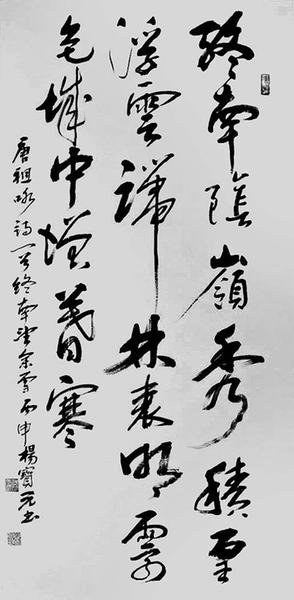 終南陰嶺秀積雪
浮雲端林表明霽
色城中增暮寒
唐祖咏詩一首終南望余雪丙申楊寶元書